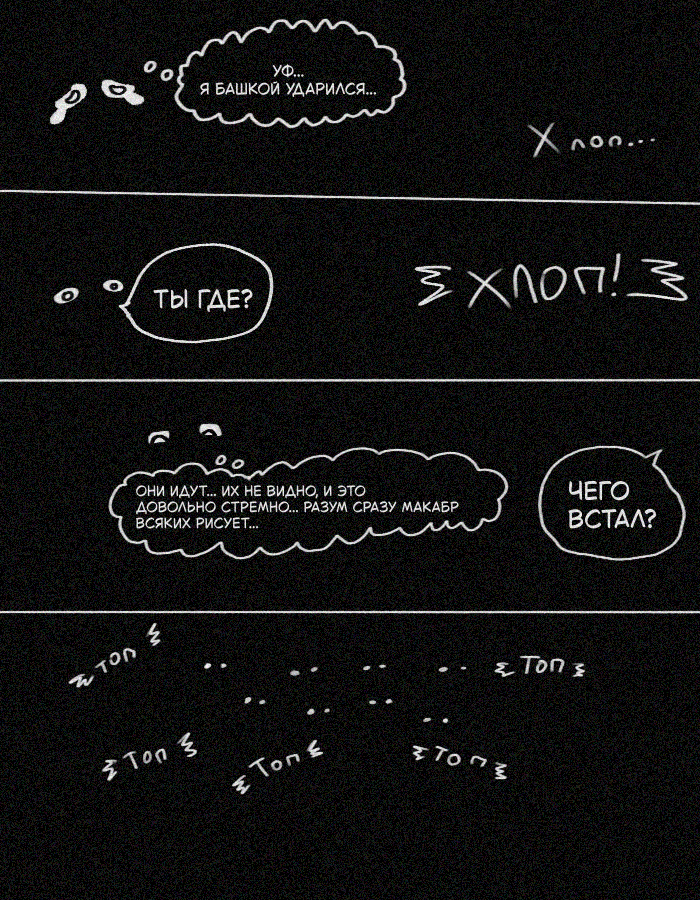 УФ...
Я БАШКОЙ УДАРИЛСЯ...
Хлоп...
ТЫ ГДЕ?
ХЛОП!
ОНИ ИДУТ... ИХ НЕ ВИДНО, И ЭТО
ДОВОЛЬНО СТРЕМНО... РАЗУМ СРАЗУ МАКАБР
ВСЯКИХ РИСУЕТ...
ЧЕГО
ВСТАЛ?
Топ
Топ
Топ
Топ
Топ